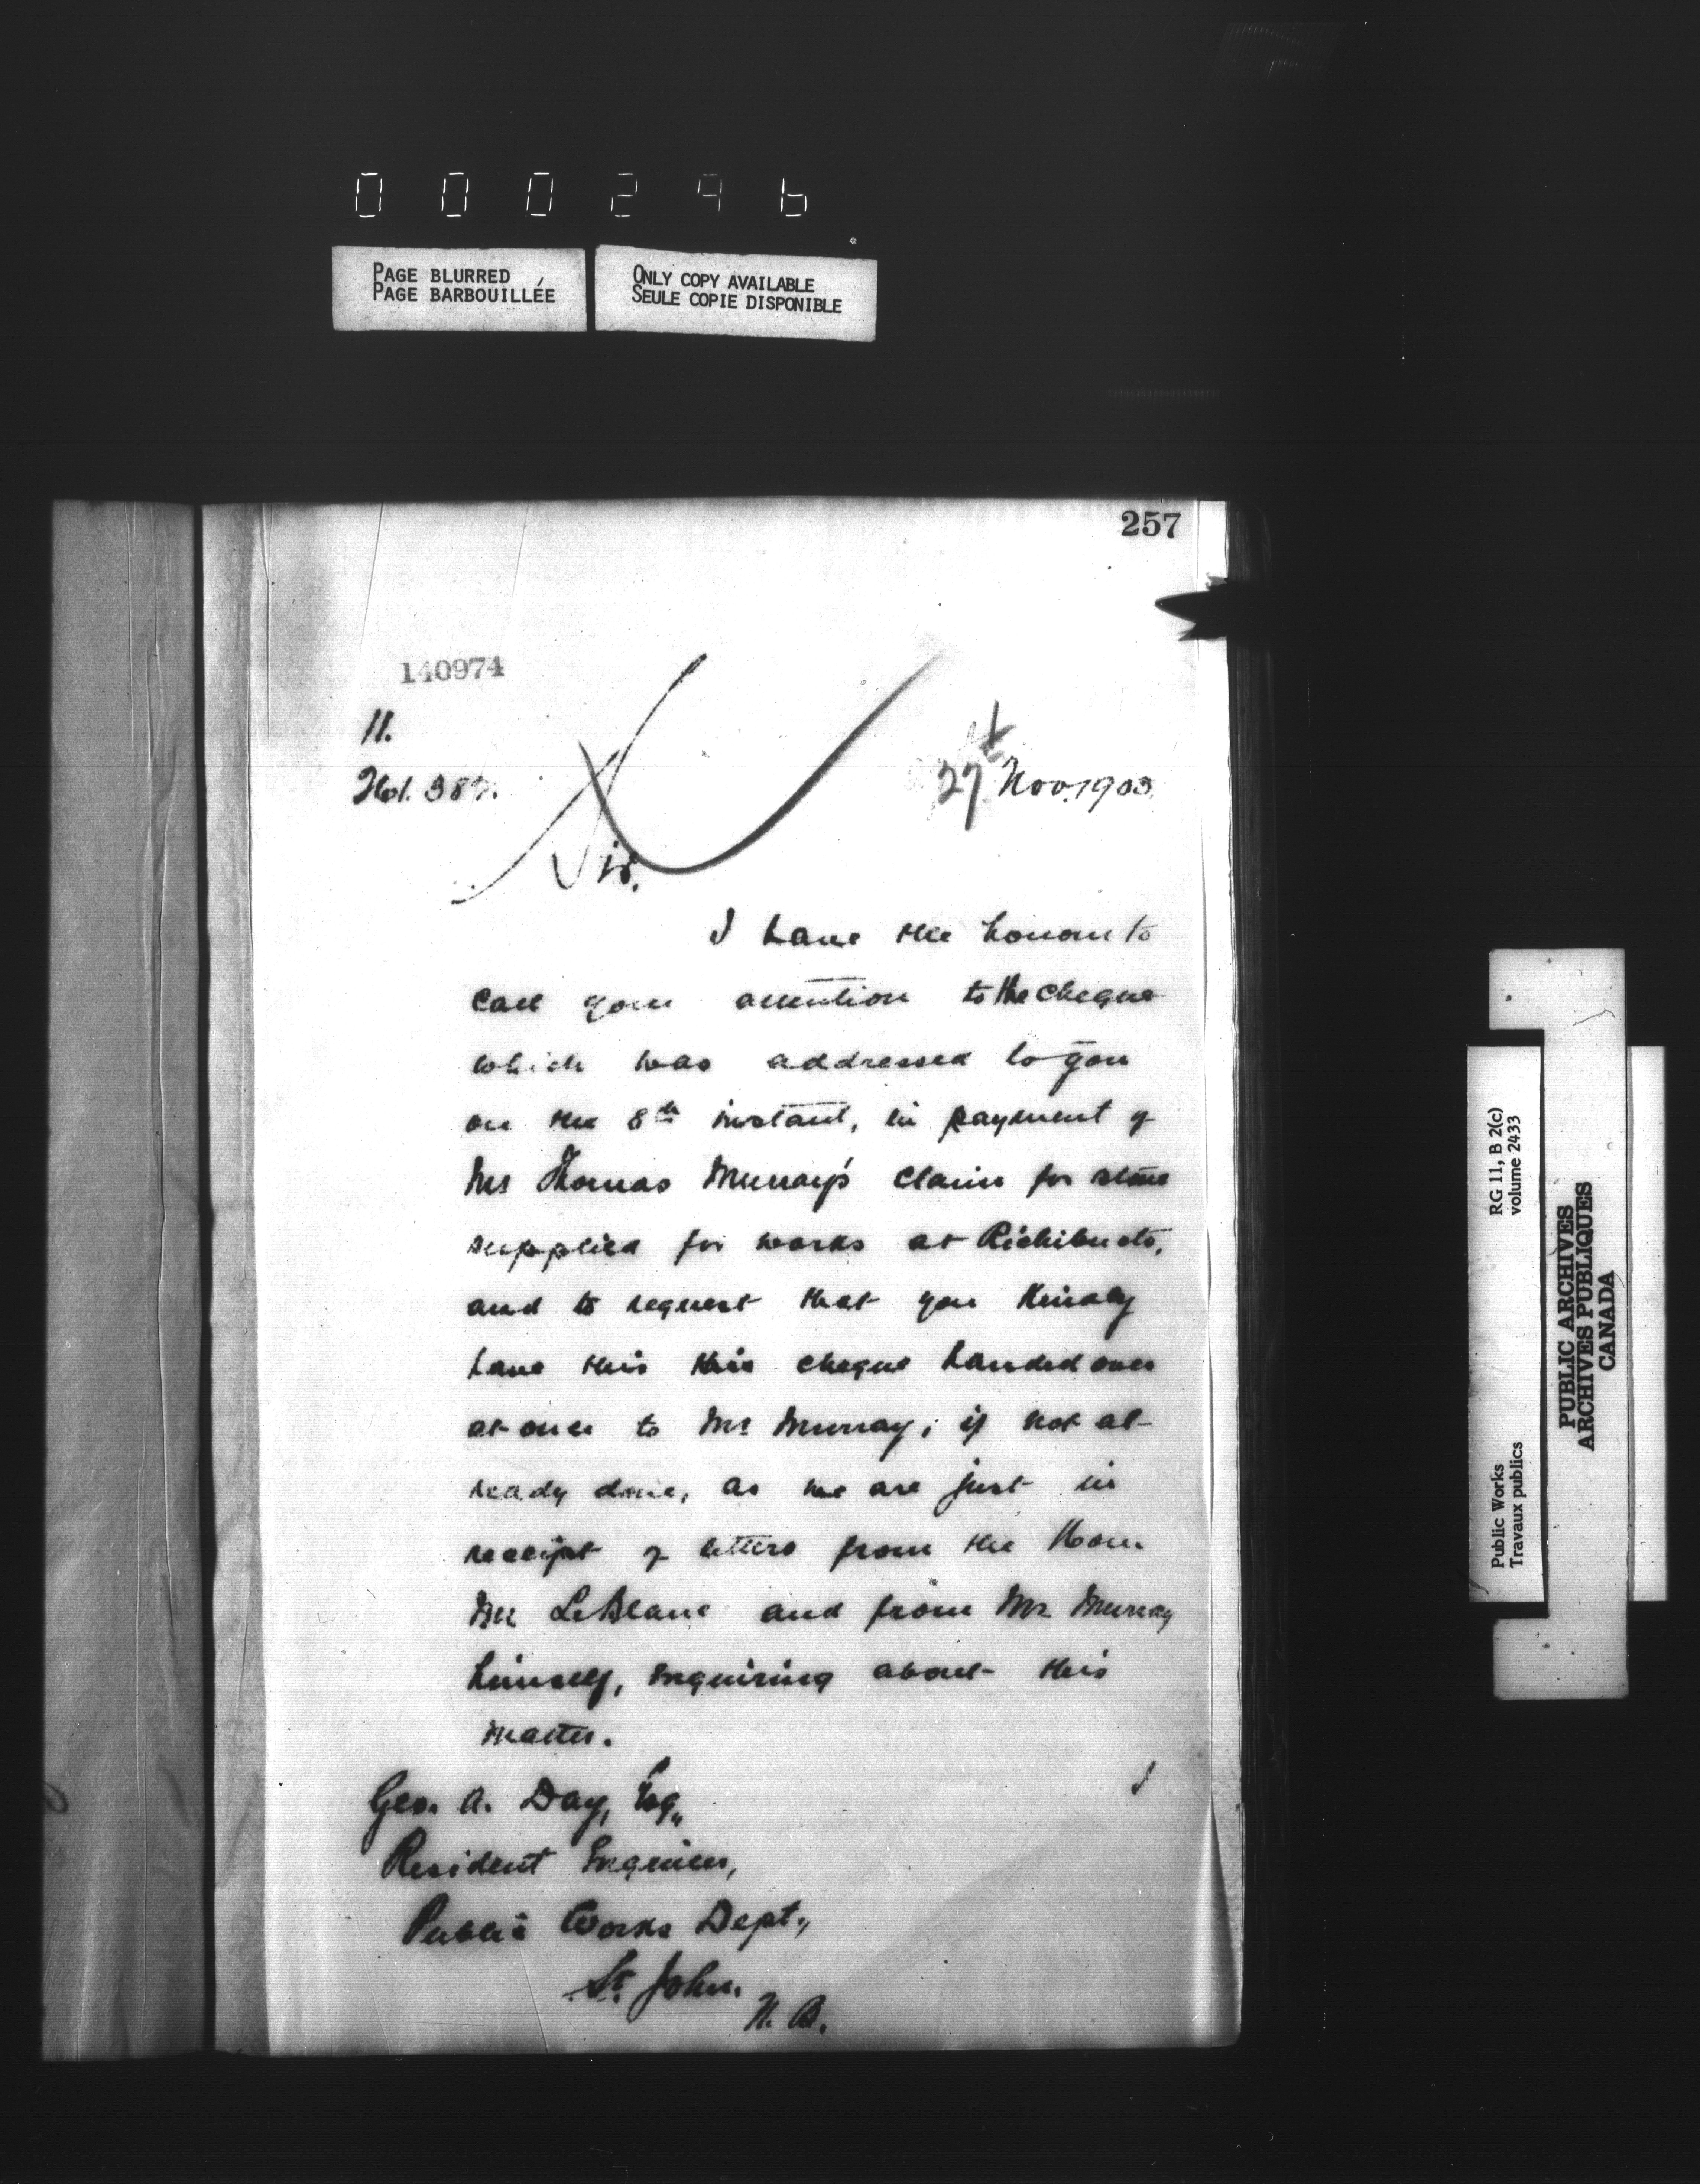 000296
PAGE BLURRED
PAGE BARBOUILLÉE
ONLY COPY AVAILABLE
SEULE COPIE DISPONIBLE
257
140974
11.
27th Nov. 1903.
Sir,
I have the honour to
call your attention to the cheque
which was addressed to you
on the 8th instant, in payment of
Mr Thomas Murray's claim for stone
supplied for works at Richibucto,
and to request that you kindly
have this this cheque handed over
at once to Mr Murray; if not al-
ready done, as we are just in
receipt of letters from the Hon.
Mr LeBlanc and from Mr Murray
himself, enquiring about this
matter.
I
Geo. A. Day, Esq.,
Resident Engineer,
Public Works Dept.,
St. John,
N. B.
Public Works
Travaux publics
RG 11, B 2(c)
volume 2433
PUBLIC ARCHIVES
ARCHIVES PUBLIQUES
CANADA